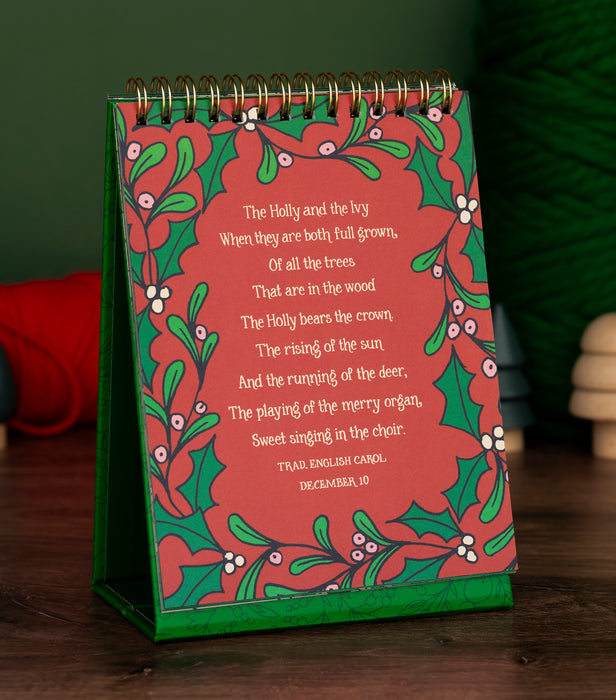 The Holly and the Ivy
When they are both full grown,
Of all the trees
That are in the wood
The Holly bears the crown.
The rising of the sun
And the running of the deer,
The playing of the merry organ,
Sweet singing in the choir.
TRAD. ENGLISH CAROL
DECEMBER 10